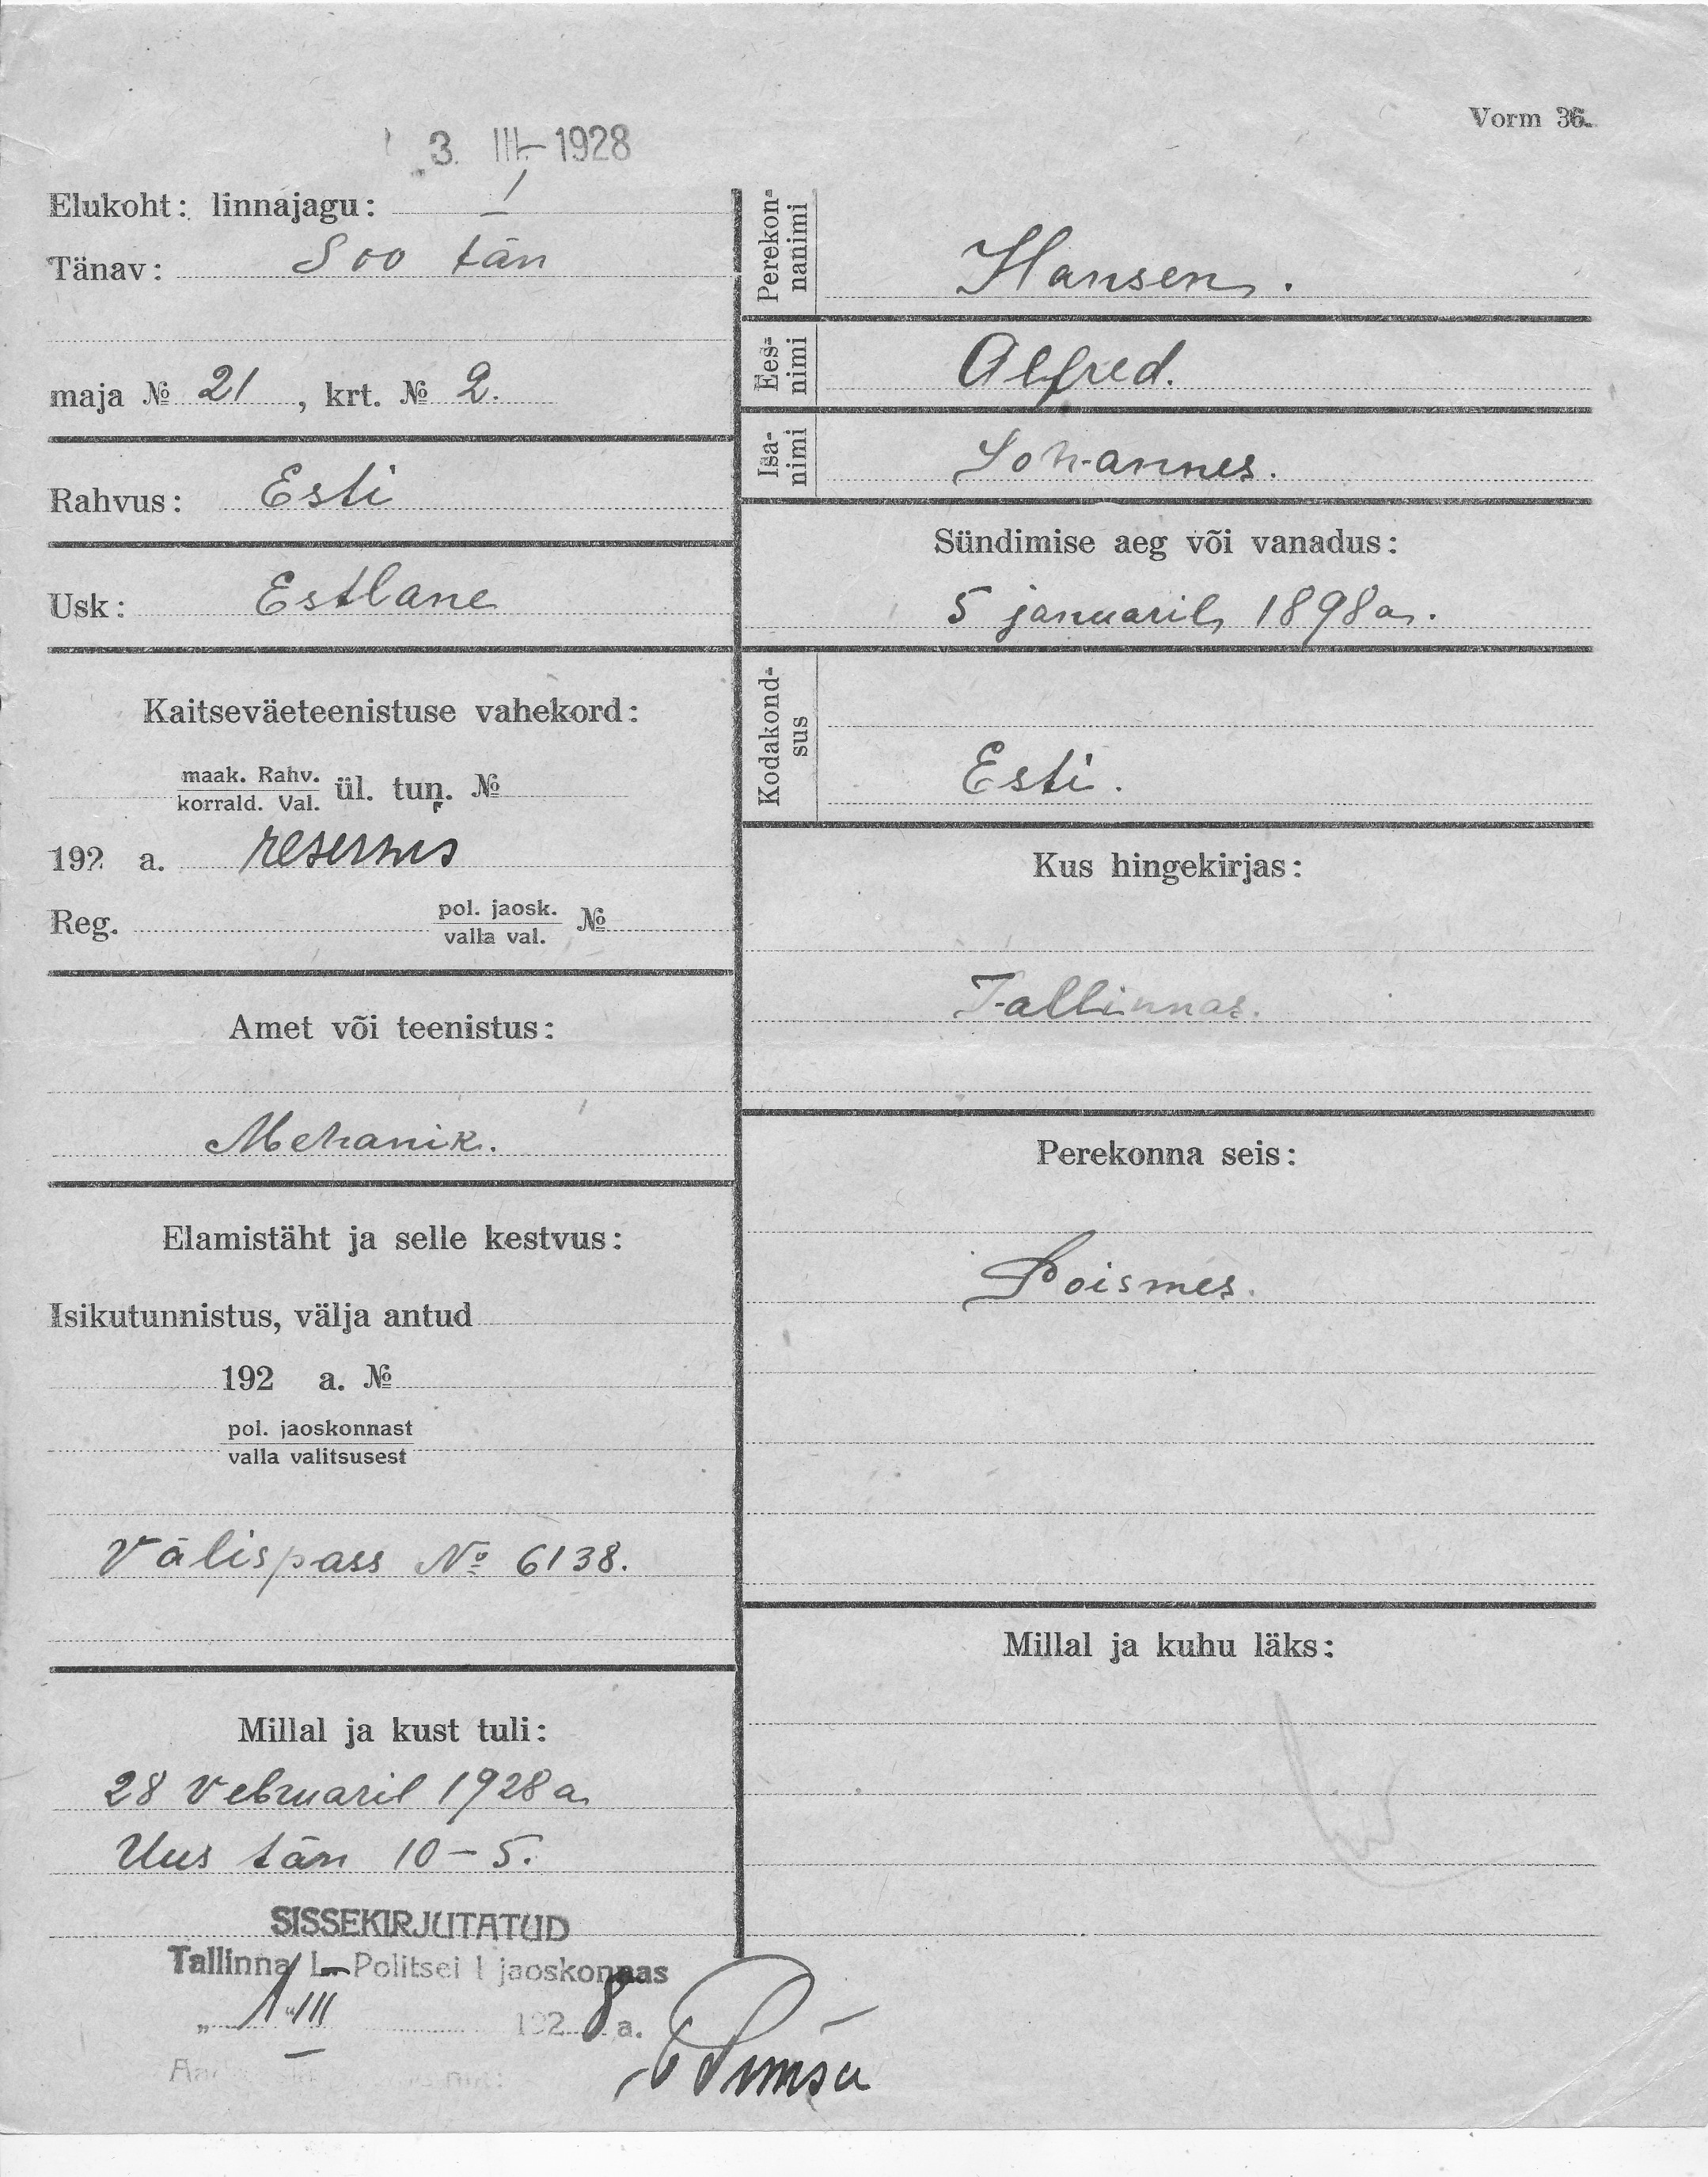 Vorm 36.
3. III 1928
Elukoht: linnajagu: I
Tänav: Soo tän
maja № 21, krt. № 2.
Rahvus: Esti
Usk: Estlane
Kaitseväeteenistuse vahekord:
maak. Rahv.
korrald. Val. ül. tun. №
192 a. reservis
Reg. pol. jaosk.
valla val. №
Amet või teenistus:
Mehanik.
Elamistäht ja selle kestvus:
Isikutunnistus, välja antud
192 a. №
pol. jaoskonnast
valla valitsusest
Välispass № 6138.
Millal ja kust tuli:
28 Vebruaril 1928 a.
Uus tän 10-5.
SISSEKIRJUTATUD
Tallinna L. Politsei I jaoskonnas
„1" III 1928 a.
Perekon-
nanimi
Hansen.
Ees-
nimi
Alfred.
Isa-
nimi
Johannes.
Sündimise aeg või vanadus:
5 januaril, 1898 a.
Kodakond-
sus
Esti.
Kus hingekirjas:
Tallinnas.
Perekonna seis:
Poismes.
Millal ja kuhu läks: